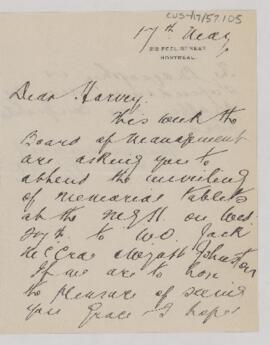 CUS-/17/57.105
17th May
PEEL STREET
MONTREAL.
Dear Harvey
This week the
Board of Management
are asking you to
attend the unveiling
of memorial tablets
at the M.G.H. on Wed.
to W.O. Jack
McCrae Johnston
If we are to have
the pleasure of seeing
you Grace & I hope